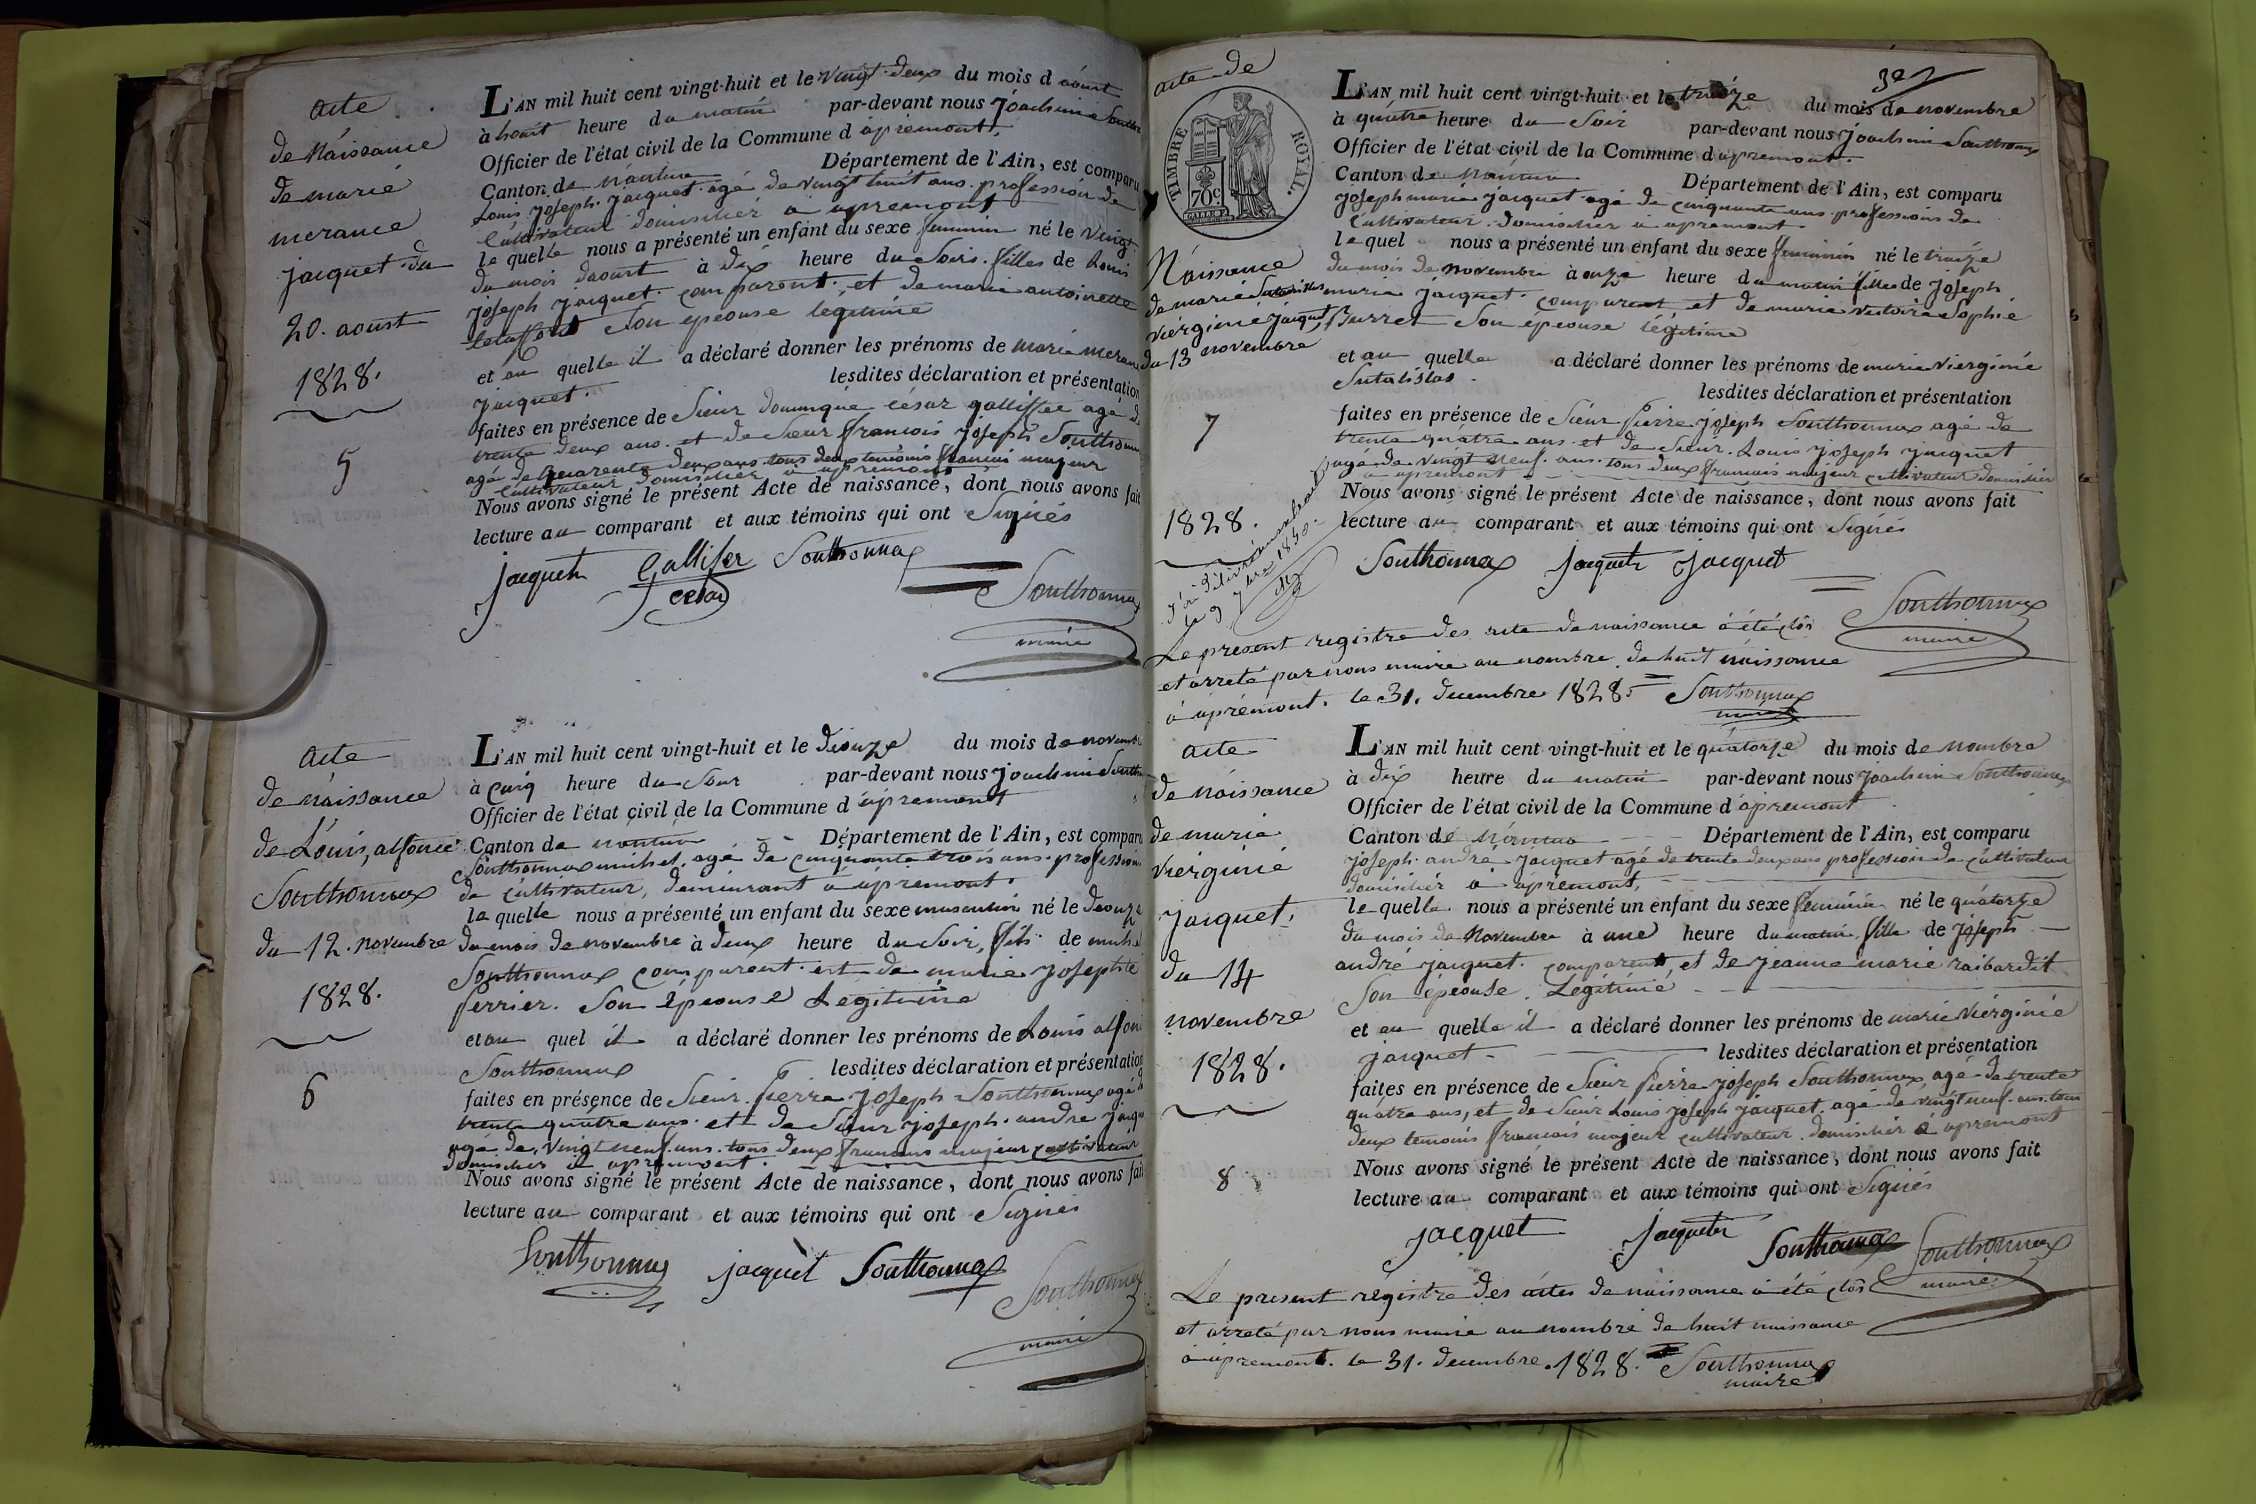 acte
de Náissance
de marie
merance
jacquet du
20. aoust
1828.
5
L'AN mil huit cent vingt-huit et le vingt-deux du mois d aoust
à huit heure du matin par-devant nous Joachim
Officier de l'état civil de la Commune d apremont.
Canton de nantua Département de l'Ain, est comparu
Louis joseph jacquet agé de vingt huit ans. profession de
Cultivateur domicilier a apremont
le quelle nous a présenté un enfant du sexe feminin né le vingt
du mois daoust à dix heure du Soir. filles de Louis
joseph jacquet. comparent. et de marie antoinette
Son épeouse légitime
et au quelle il a déclaré donner les prénoms de marie
jacquet. lesdites déclaration et présentation
faites en présence de Sieur dominique césar galliffet agé de
trente deux ans. et de Sieur francois joseph Southonnax
agé de quarente deux ans. tous deux temoins francais majeur
Cultivateur domicilier a apremont
Nous avons signé le présent Acte de naissance, dont nous avons fait
lecture au comparant et aux témoins qui ont Signés
jacquet Gallifer cesar Southonnax
Southonnax
maire
acte
de náissance
de Louis, alfonce
Southonnax
du 12. novembre
1828.
6
L'AN mil huit cent vingt-huit et le deouze du mois de novembre
à cinq heure du Soir par-devant nous joachim
Officier de l'état civil de la Commune d apremont
Canton de nantua Département de l'Ain, est comparu
Southonnax michel. agé de cinquante trois ans. profession
de cultivateur, demeurant à apremont.
le quelle nous a présenté un enfant du sexe masculin né le deouze
du mois de novembre à deux heure du Soir, fils de michel
Southonnax comparent. et de marie josephte
ferrier. Son épeouse Légitime
et au quel il a déclaré donner les prénoms de Louis alfonce
Southonnax lesdites déclaration et présentation
faites en présence de Sieur. Pierre joseph Southonnax agé de
trente quatre ans. et de Sieur joseph. andre jacquet
agé de, vingt neuf. ans. tous deux francais majeur cultivateur
domicilier a apremont.
Nous avons signé le présent Acte de naissance, dont nous avons fait
lecture au comparant et aux témoins qui ont Signés
Southonnax jacquet Southonnax
Southonnax
maire
acte de
TIMBRE ROYAL.
70c
Náissance
de marie
viérginie jacquet
du 13 novembre
7
1828.
32
L'AN mil huit cent vingt-huit et le treize du mois de novembre
à quatre heure du Soir par-devant nous joachim Southonnax
Officier de l'état civil de la Commune d apremont.
Canton de Nantua Département de l'Ain, est comparu
joseph marie jacquet agé de cinquante ans professions de
Cultivateur. domicilier a apremont
le quel nous a présenté un enfant du sexe feminin né le treize
du mois de novembre à onze heure du matin filles de joseph
marie jacquet. comparent et de marie victoire Sophie
Burret Son épeouse légitime
et au quelle a déclaré donner les prénoms de marie viérginie
lesdites déclaration et présentation
faites en présence de Sieur Pierre joseph Southonnax agé de
trente quatre ans et de Sieur. Louis joseph jacquet
agé de vingt neuf. ans. tous deux francais majeur cultivateur domicilier
a apremont
Nous avons signé le présent Acte de naissance, dont nous avons fait
lecture au comparant et aux témoins qui ont Signés
Southonnax jacquet jacquet
Southonnax
maire
Le présent registre des acte de naissance a été clos
et arreté par nous maire au nombre de huit náissance
à apremont. le 31. decembre 1828. Southonnax
maire
acte
de náissance
de marie
viérginié
jacquet.
du 14
novembre
1828.
8
L'AN mil huit cent vingt-huit et le quatorze du mois de nombre
à dix heure du matin par-devant nous joachim Southonnax
Officier de l'état civil de la Commune d apremont
Canton de Nantua Département de l'Ain, est comparu
joseph. andre jacquet agé de trente deux ans profession de cultivateur
domicilier a apremont,
le quelle nous a présenté un enfant du sexe feminin né le quatorze
du mois de Novembre à une heure du matin, fille de joseph
andré jacquet. comparent, et de jeanne marie raibardit
Son épeouse. Légitimé
et au quelle il a déclaré donner les prénoms de marie viérginie
jacquet lesdites déclaration et présentation
faites en présence de Sieur Pierre joseph Southonnax agé de trente
quatre ans, et de Sieur Louis joseph jacquet. agé de vingt neuf. ans. tous
deux temoins francais majeur cultivateur. domicilier a apremont
Nous avons signé le présent Acte de naissance, dont nous avons fait
lecture au comparant et aux témoins qui ont Signés
jacquet jacquet Southonnax Southonnax
maire
Le present régistre des actes de naissance a été clos
et arreté par nous maire au nombre de huit naissance
a apremont. le 31. decembre. 1828. Southonnax
maire